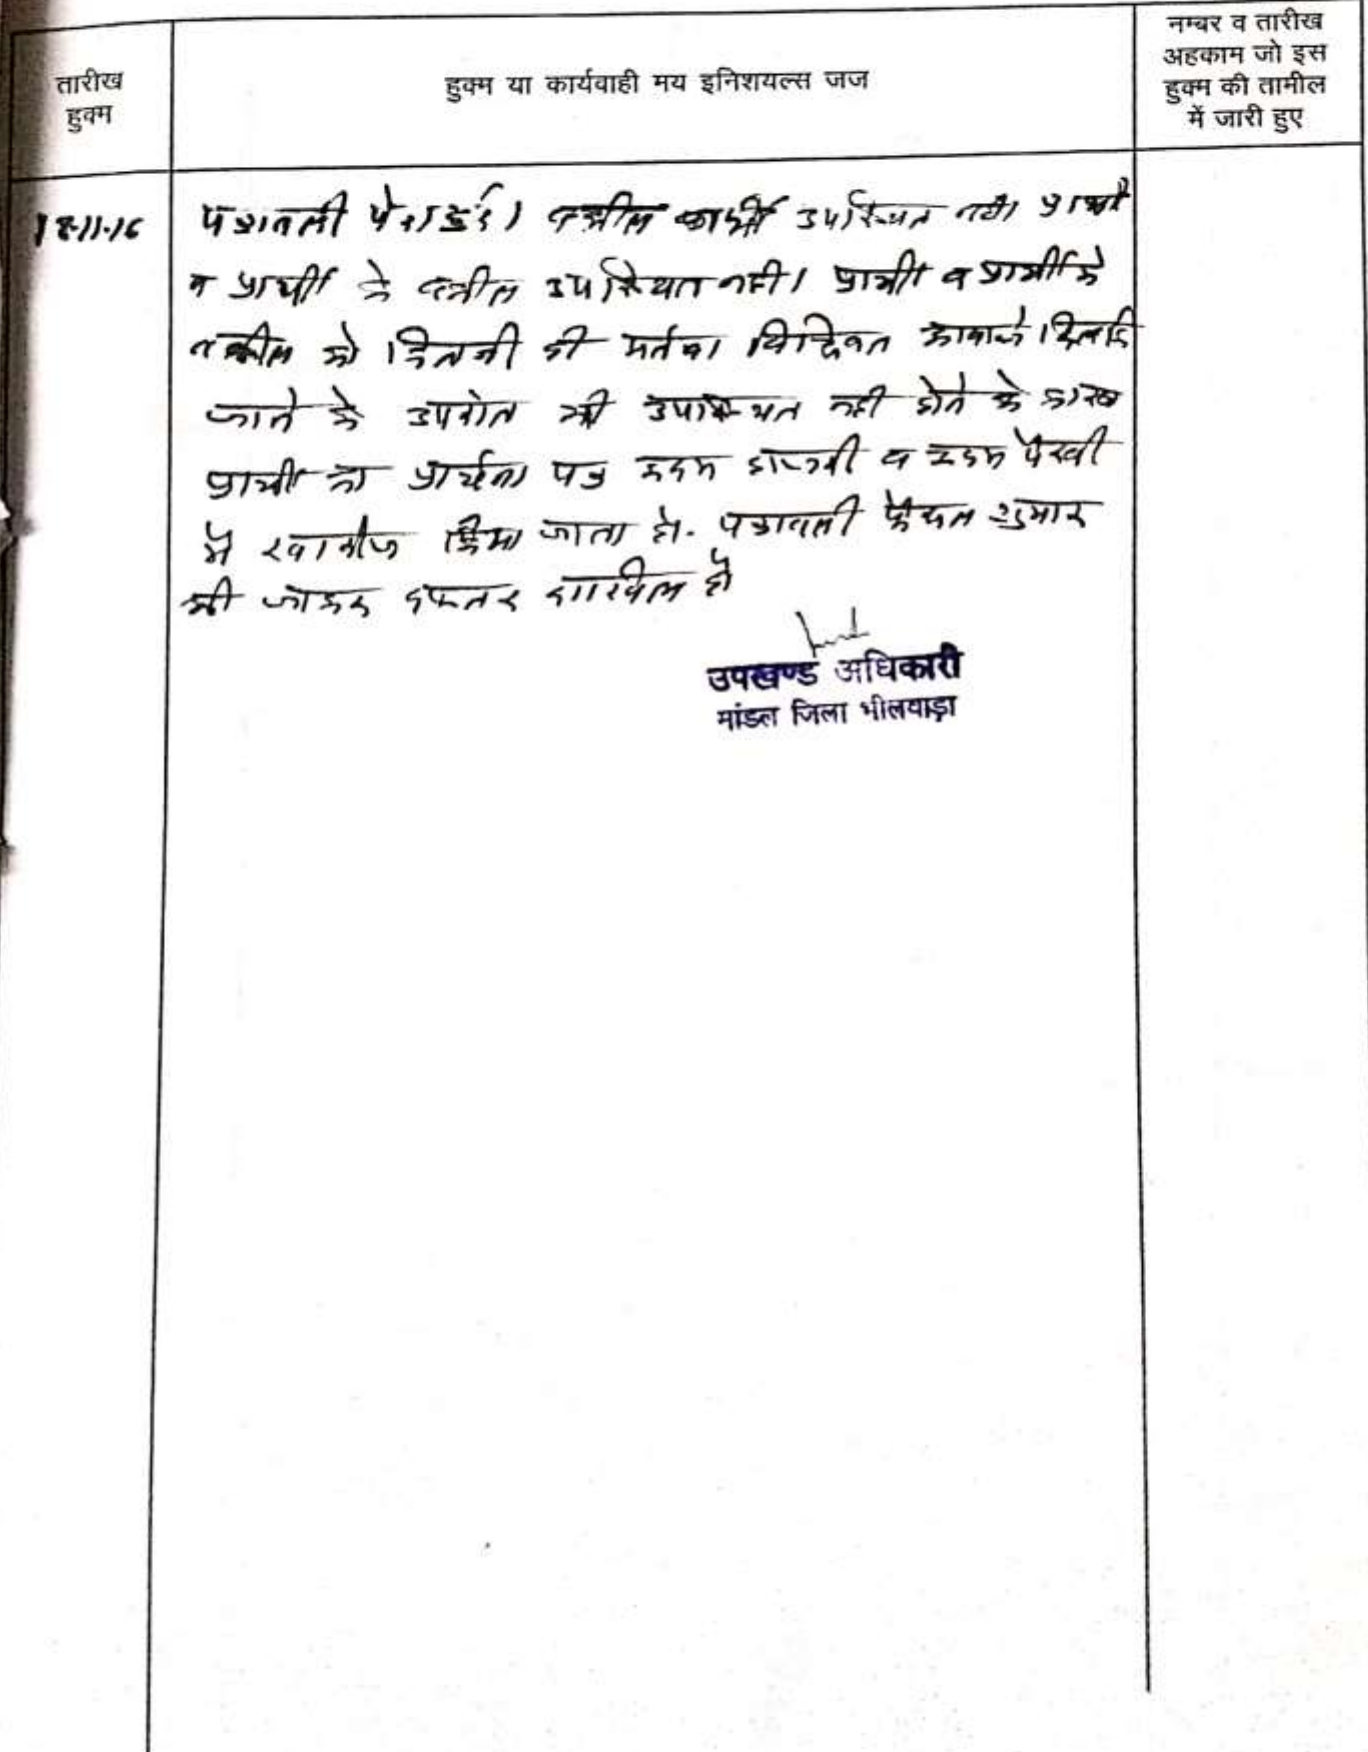 तारीख
हुक्म
हुक्म या कार्यवाही मय इनिशयल्स जज
नम्बर व तारीख
अहकाम जो इस
हुक्म की तामील
में जारी हुए
18-11-16
पत्रावली पेश हुई। वकील प्रार्थी उपस्थित नही। प्रार्थी
व प्रार्थी के वकील उपस्थित नही। प्रार्थी व प्रार्थी के
वकील को कितनी ही मर्तबा विधिवत आवाजे दिलाई
जाने के उपरांत भी उपस्थित नही होने के कारण
प्रार्थी का प्रार्थना पत्र अदम हाजरी व अदम पैरवी
मे खारीज किया जाता है. पत्रावली फैसल शुमार
की जाकर दफ्तर दाखिल हो
उपखण्ड अधिकारी
मांडल जिला भीलवाड़ा